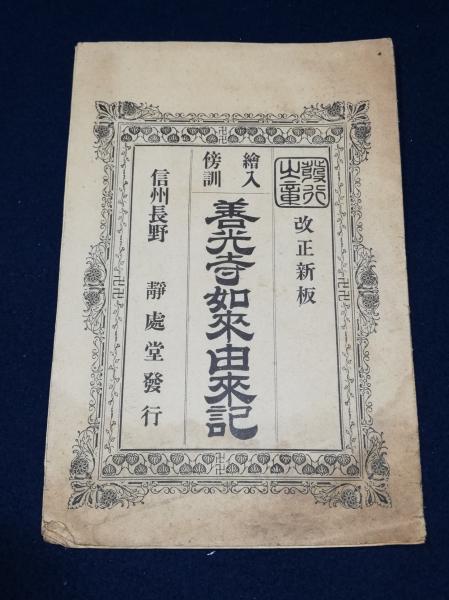 改正新板
繪入
傍訓
善光寺如來由來記
信州長野　靜處堂發行